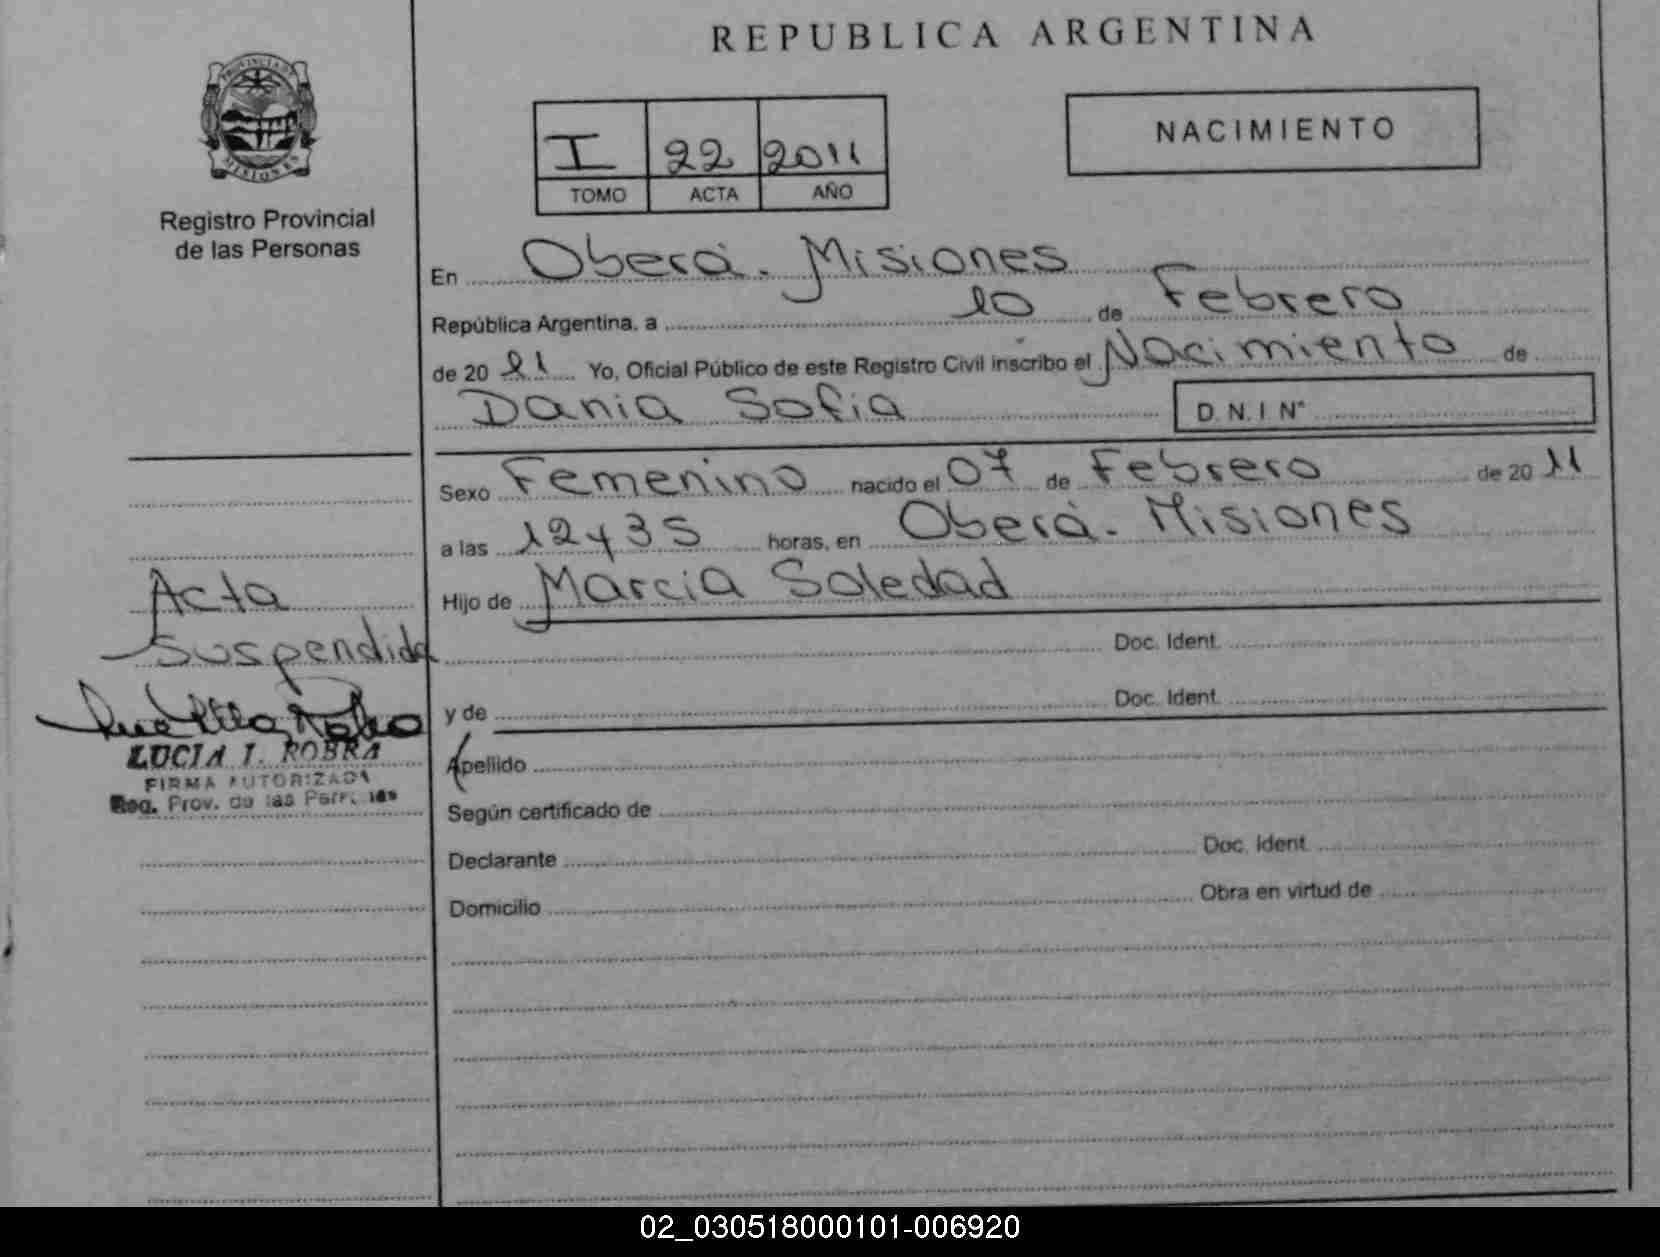 REPUBLICA ARGENTINA
PROVINCIA DE
MISIONES
Registro Provincial
de las Personas
I 22 2011
TOMO ACTA AÑO
NACIMIENTO
En Oberá. Misiones
República Argentina, a 10 de Febrero
de 20 11 Yo, Oficial Público de este Registro Civil inscribo el Nacimiento de
Dania Sofia D.N.I. Nº
Sexo Femenino nacido el 07 de Febrero de 20 11
a las 12 y 35 horas, en Oberá. Misiones
Hijo de Marcia Soledad
Doc. Ident.
y de Doc. Ident.
Apellido
Según certificado de
Declarante Doc. Ident.
Domicilio Obra en virtud de
Acta
Suspendida
LUCIA I. ROBRA
FIRMA AUTORIZADA
Reg. Prov. de las Personas
02_030518000101-006920